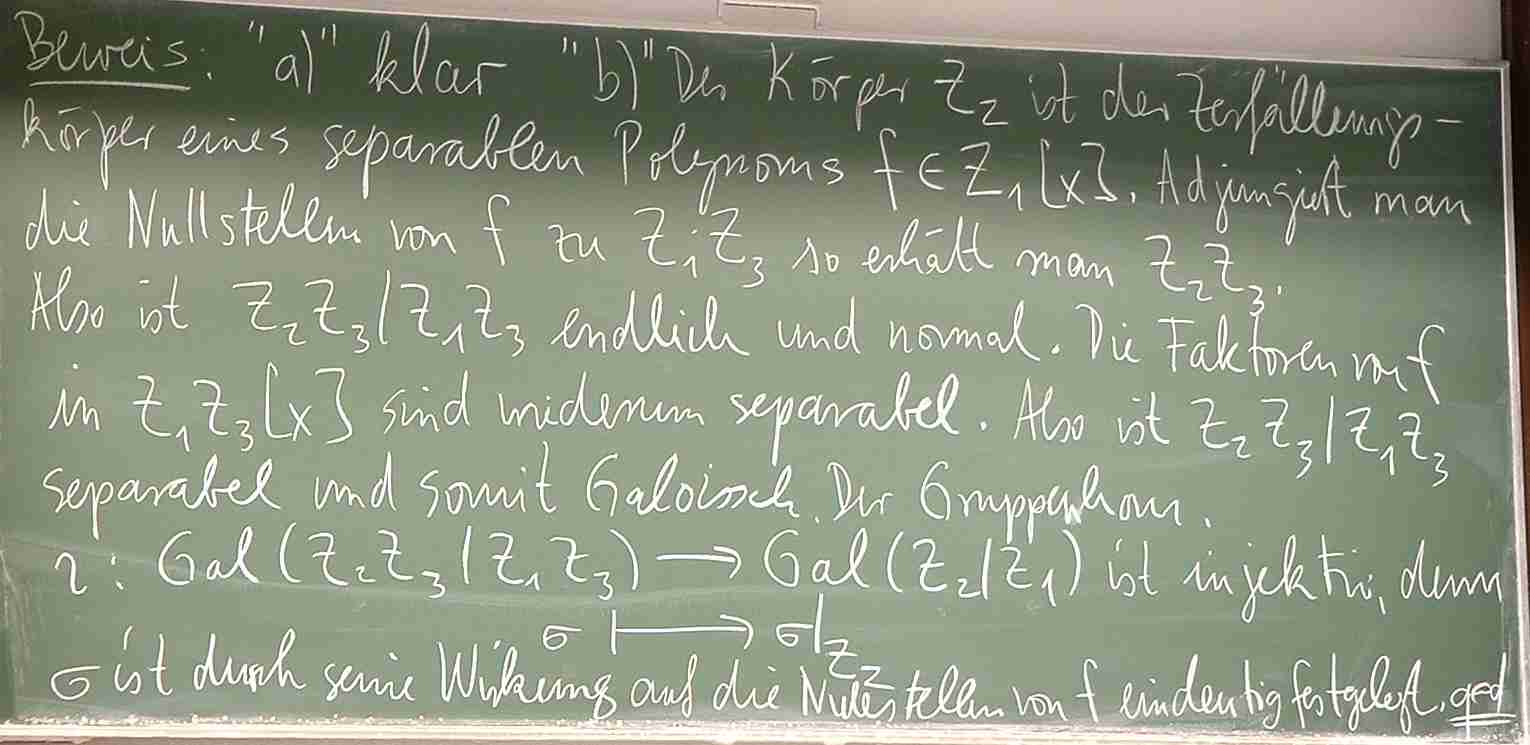 Beweis: "a)" klar "b)" Der Körper Z₂ ist der Zerfällungs-
körper eines separablen Polynoms f ∈ Z₁[x]. Adjungiert man
die Nullstellen von f zu Z₁Z₃ so erhält man Z₂Z₃.
Also ist Z₂Z₃/Z₁Z₃ endlich und normal. Die Faktoren von f
in Z₁Z₃[x] sind widerum separabel. Also ist Z₂Z₃/Z₁Z₃
separabel und somit Galoissch. Der Gruppenhom.
η: Gal(Z₂Z₃/Z₁Z₃) → Gal(Z₂/Z₁) ist injektiv, denn
σ ↦ σ|_Z₂
σ ist durch seine Wirkung auf die Nullstellen von f eindeutig festgelegt. qed